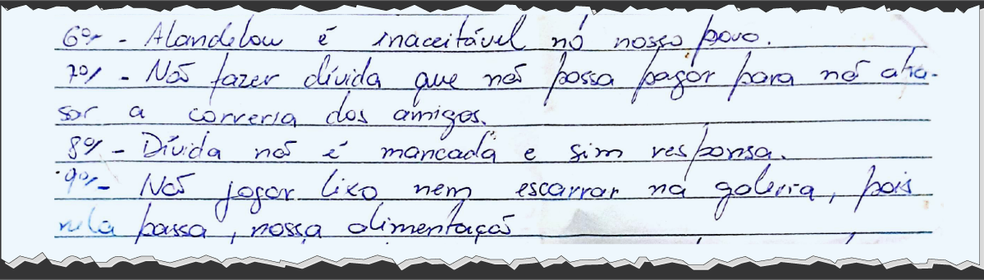 6º - Alandelou é inaceitável nó nosso povo.
7º - Não fazer dívida que não possa pagar para não atra-
sar a correria dos amigos.
8º - Dívida não é mancada e sim responsa.
9º - Não jogar lixo nem escarrar na galeria, pois
nela passa, nossa alimentação